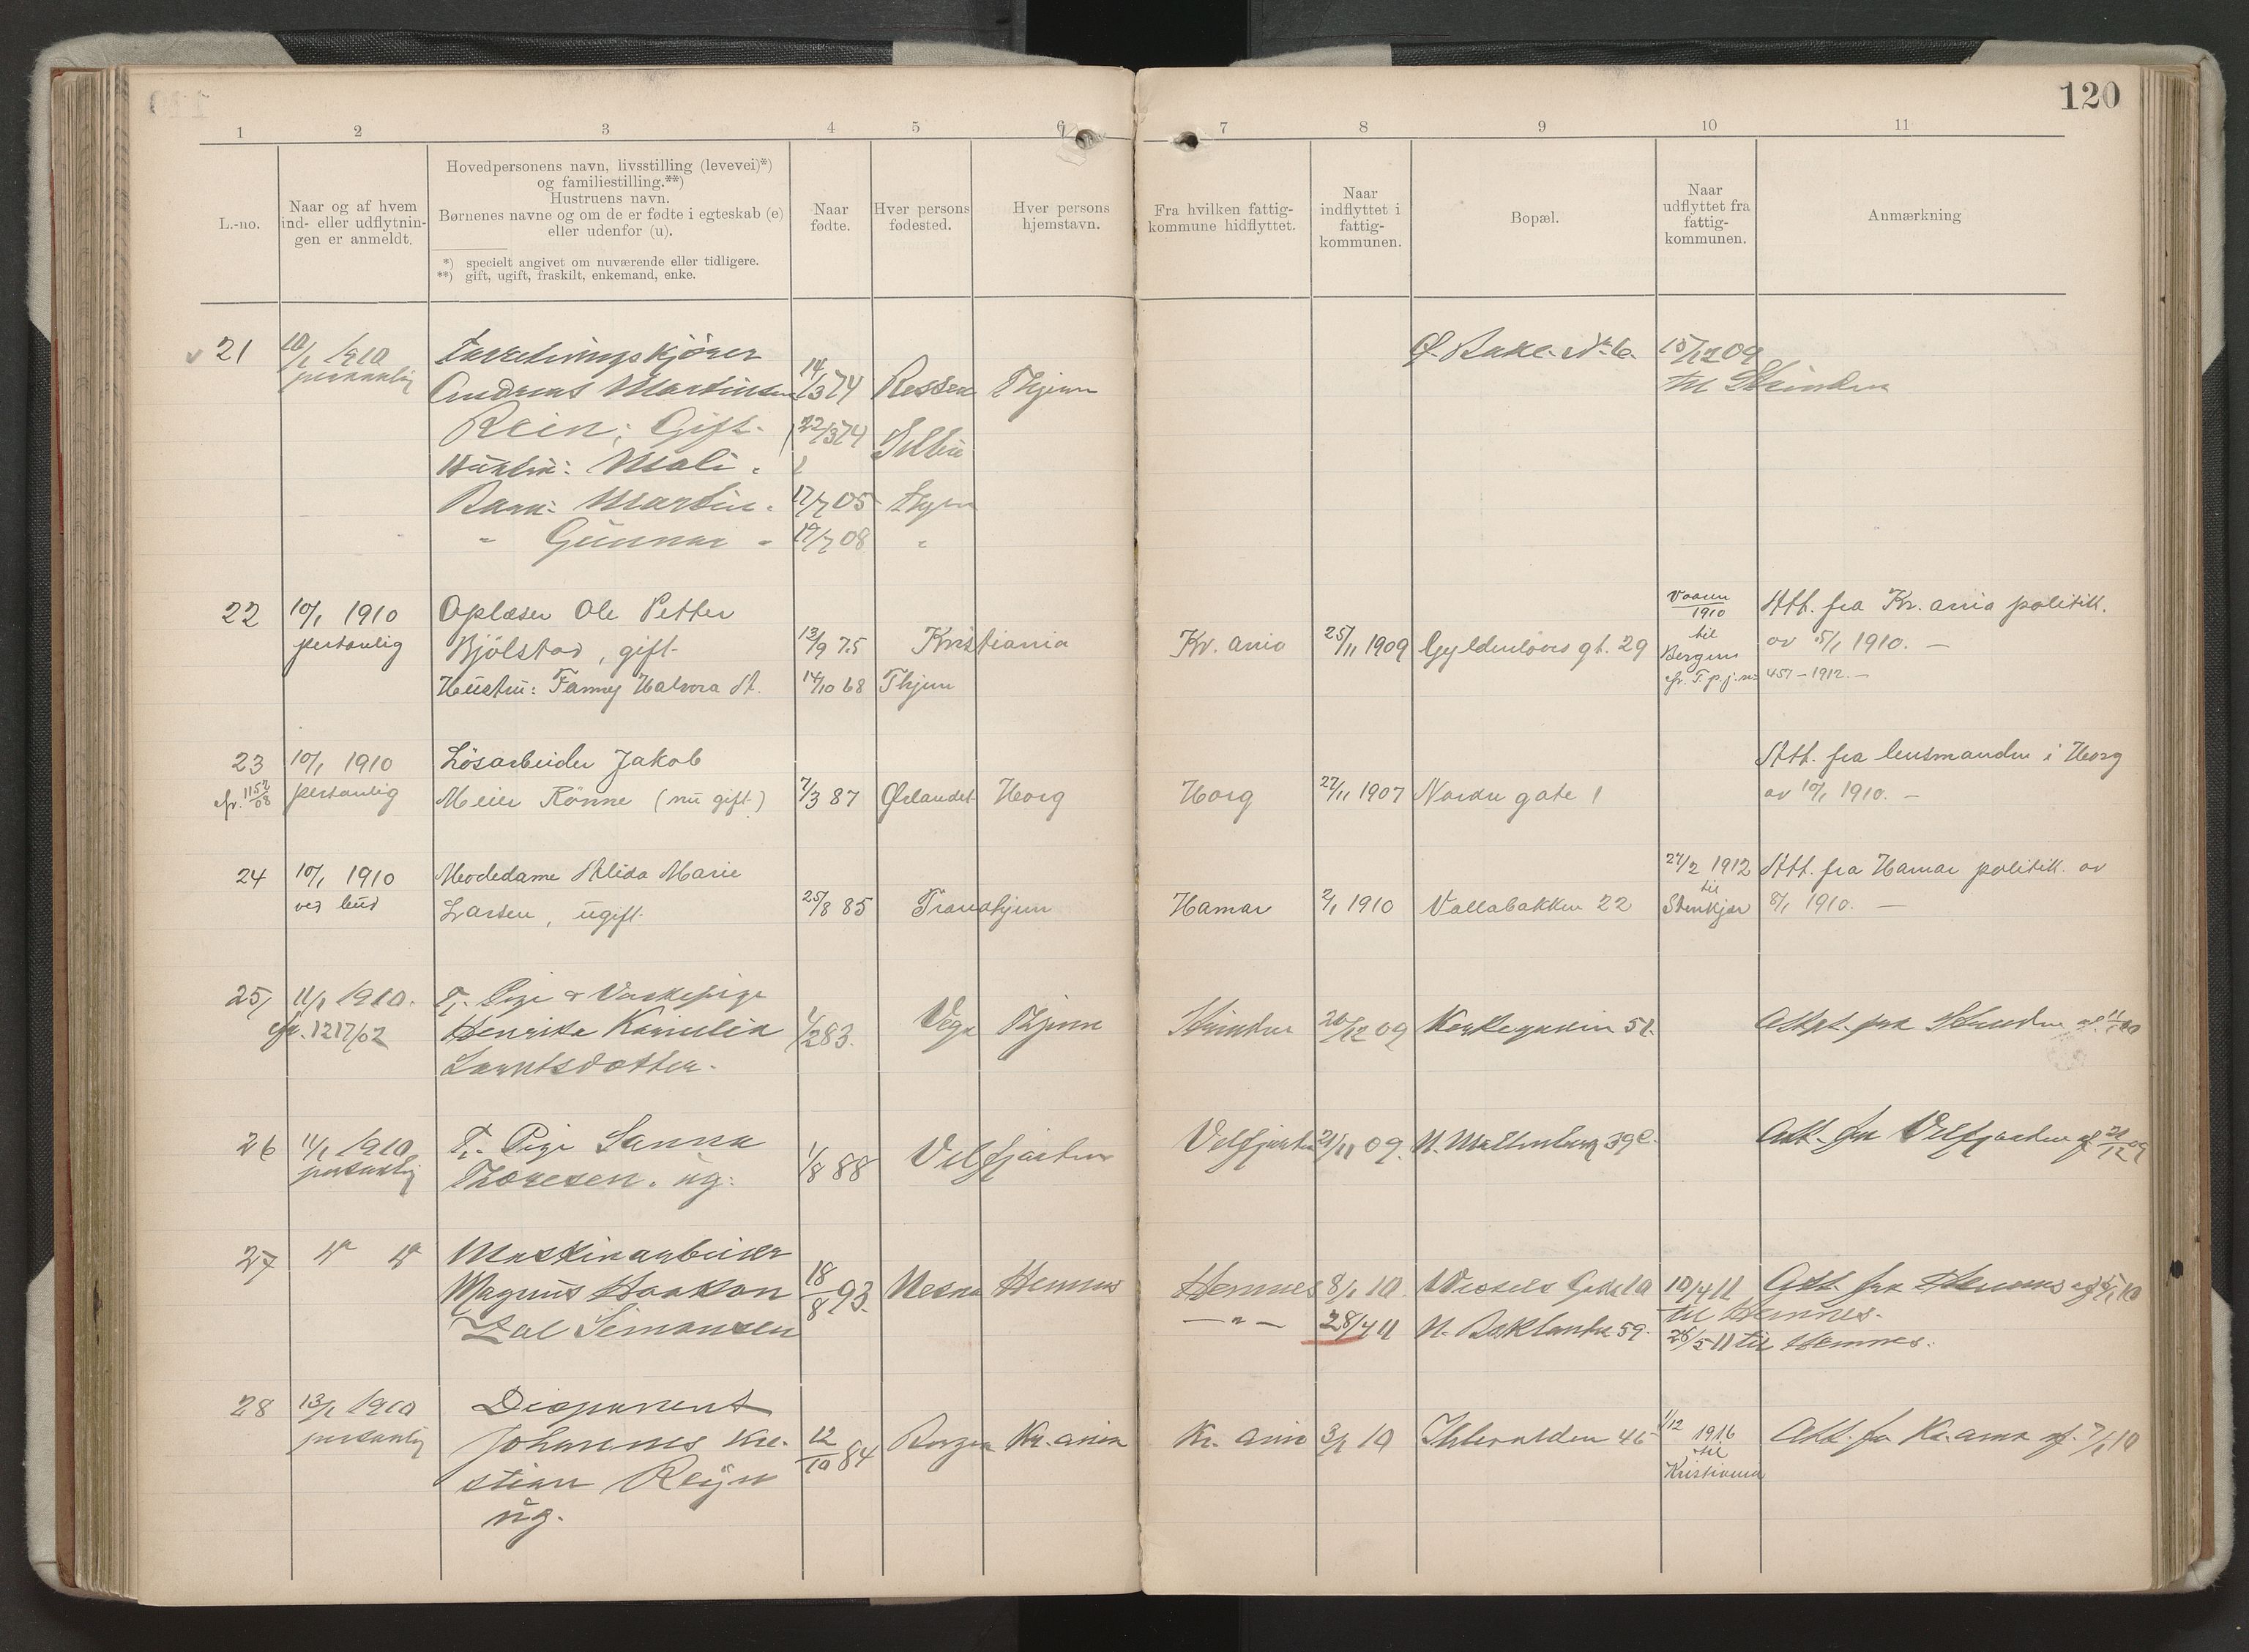 120
1 2 3 4 5 6 7 8 9 10 11
L.-no.
Naar og af hvem
ind- eller udflytnin-
gen er anmeldt.
Hovedpersonens navn, livsstilling (levevei)*)
og familiestilling.**)
Hustruens navn.
Børnenes navne og om de er fødte i egteskab (e)
eller udenfor (u).
*) specielt angivet om nuværende eller tidligere.
**) gift, ugift, fraskilt, enkemand, enke.
Naar
fødte.
Hver persons
fødested.
Hver persons
hjemstavn.
Fra hvilken fattig-
kommune hidflyttet.
Naar
indflyttet i
fattig-
kommunen.
Bopæl.
Naar
udflyttet fra
fattig-
kommunen.
Anmærkning
21 10/1 1910 Ø. Bakl. No 6. 15/12 09
personlig Andreas Martinsen 14/3 74 Rissen Thjem til Strinden
Rein, Gift. 22/3 74 Selbu
Hustru: Mali.
Barn: Martin. 17/7 05 Thjem
" Gunnar " 19/7 08 "
22 10/1 1910 Oplæser Ole Petter Vaaren 1910 Att. fra Kr.ania politik.
personlig Bjölstad, gift. 13/9 75 Kristiania Kr.ania 25/11 1909 Gyldenløves gt. 29 til Bergen av 5/1 1910. —
Hustru: Fanny Halvora St. 14/10 68 Thjem cfr. T. p. j. no 457 - 1912. —
23 10/1 1910 Lösarbeider Jakob Att. fra lensmanden i Horg
cfr. 1152/08 personlig Meier Rönne (nu gift.) 7/3 87 Ørlandet Horg Horg 27/11 1907 Nordre gate 1 av 10/1 1910. —
24 10/1 1910 Modedame Alida Marie 27/2 1912 Att. fra Hamar politik. av
ved bud Larsen, ugift. 25/8 85 Trondhjem Hamar 7/1 1910 Vollabakken 22 til Stenkjær 8/1 1910. —
25 11/1 1910. Tj. Pige & Vaskepige
cfr. 1217/02 Henrika Kornelia 4/2 83. Vega Thjem Strinden 20/12 09 Att. fra Strinden af 11/1 10
Larntsdotter.
26 11/1 1910 Tj. Pige Sanna Velfjorden 21/11 09. N. Møllenberg 39 c. Att. fra Velfjorden af 21/12 09
personlig Thoresen. ug. 1/8 88 Velfjorden
27 Maskinarbeider
Magnus Haakon 18/8 93. Nesna Hemnes Hemnes 8/1 10. Wessels Gade 1a 10/4 11 Att. fra Hemnes af 5/1 10
Simonsen — " — 28/4 11 N. Baklandet 59. til Hemnes.
26/5 11 til Hemnes.
28 13/1 1910 Disponent
personlig Johannes Kri- 12/10 84 Bergen Kr.ania Kr.ania 3/1 10 Ihlevolden 46 1/12 1916 Att. fra Kr.ania af 7/1 10
stian Reijn til
ug. Kristiania